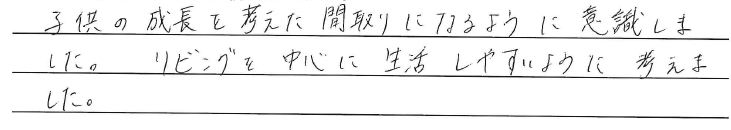 子供の成長を考えた間取りになるように意識しま
した。 リビングを中心に生活しやすいように考えま
した。